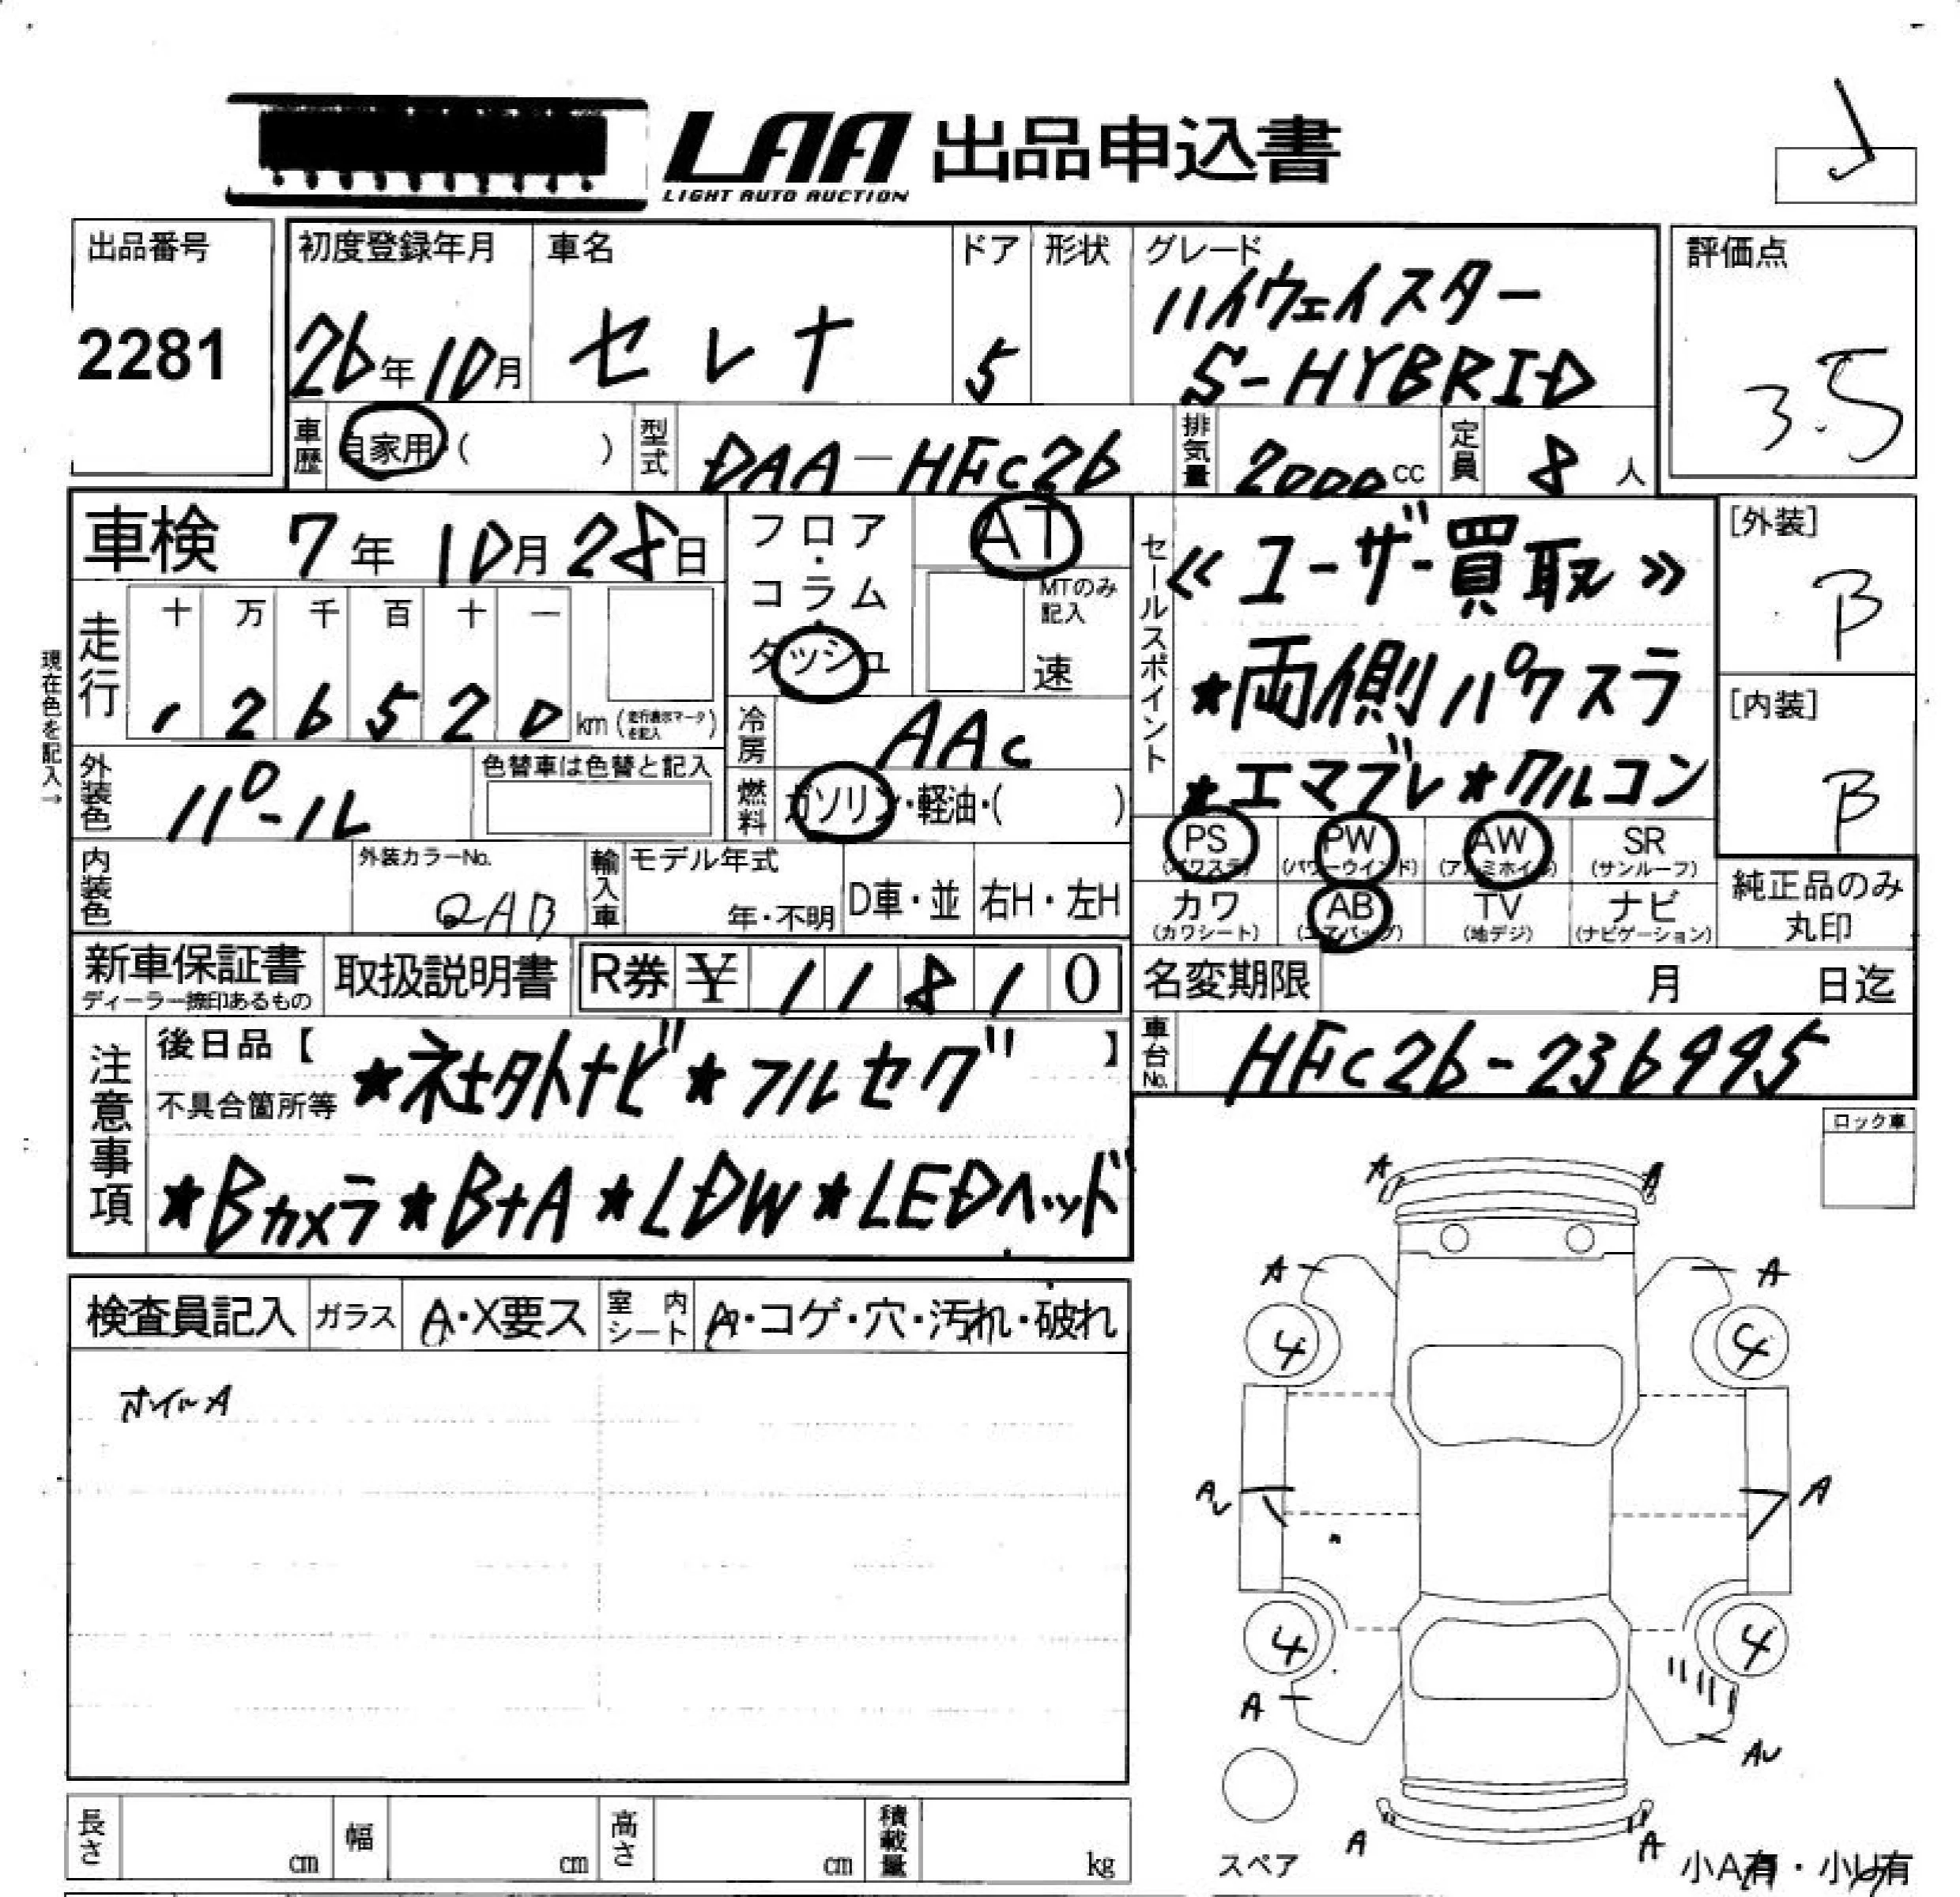 LAA 出品申込書
LIGHT AUTO AUCTION
出品番号 初度登録年月 車名 ドア 形状 グレード 評価点
2281 26年10月 セレナ 5 ハイウェイスター
S-HYBRID 3.5
車歴 自家用・( ) 型式 DAA-HFC26 排気量 2000cc 定員 8人
車検 7年10月28日 フロア・コラム・ダッシュ AT
MTのみ記入
速
セールスポイント
《ユーザー買取》
★両側パワスラ
★エマブレ★クルコン
[外装]
B
[内装]
B
現在色を記入→
走行 十 万 千 百 十 一
1 2 6 5 2 0 km (走行表示マークを記入)
冷房 AAC
外装色 パール 色替車は色替と記入
燃料 ガソリン・軽油・( )
PS (パワステ) PW (パワーウインド) AW (アルミホイル) SR (サンルーフ)
カワ (カワシート) AB (エアバッグ) TV (地デジ) ナビ (ナビゲーション)
純正品のみ丸印
内装色 外装カラーNo. QAB 輸入車 モデル年式 年・不明 D車・並 右H・左H
新車保証書 取扱説明書 R券 ¥ 1 1 8 1 0
ディーラー捺印あるもの
名変期限 月 日迄
車台No. HFC26-236995
注意事項
後日品【 】
不具合箇所等
★社外ナビ★フルセグ
★Bカメラ★B+A★LDW★LEDヘッド
ロック車
検査員記入 ガラス A・X要ス 室内シート A・コゲ・穴・汚れ・破れ
ホイルA
A A
A A
4 4
A A
4 4
A AU
A A
スペア
小A有・小U有
長さ cm 幅 cm 高さ cm 積載量 kg